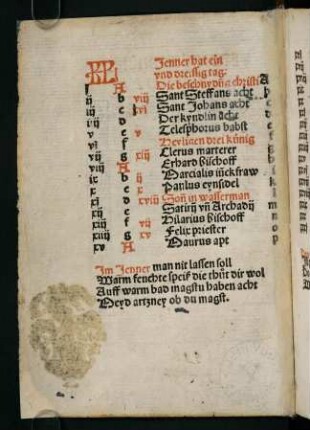 KL Jenner hat ein
vnd dreissig tag
A Die beschnydung christi A
ij b viij Sant Steffans acht b
iij c xvj Sant Johans acht c
iiij d v Der kyndlin acht
v e Telesphorus babst
vj f xiij Heyligen drei künig
vij g ij Clerus marterer
viij A Erhard Bischoff
ix b x Marcialis iückfraw
x c Paulus eynsidel
xj d xviij Son in wasserman
xij e vij Satirus vñ Archadij
xiij f Hilarius Bischoff
xiiij g xv Felix priester
xv A Maurus apt
Im Jenner man nit lassen soll
Warm feuchte speiß die thut dir wol
Auff warm bad magstu haben acht
Meyd artzney ob du magst.